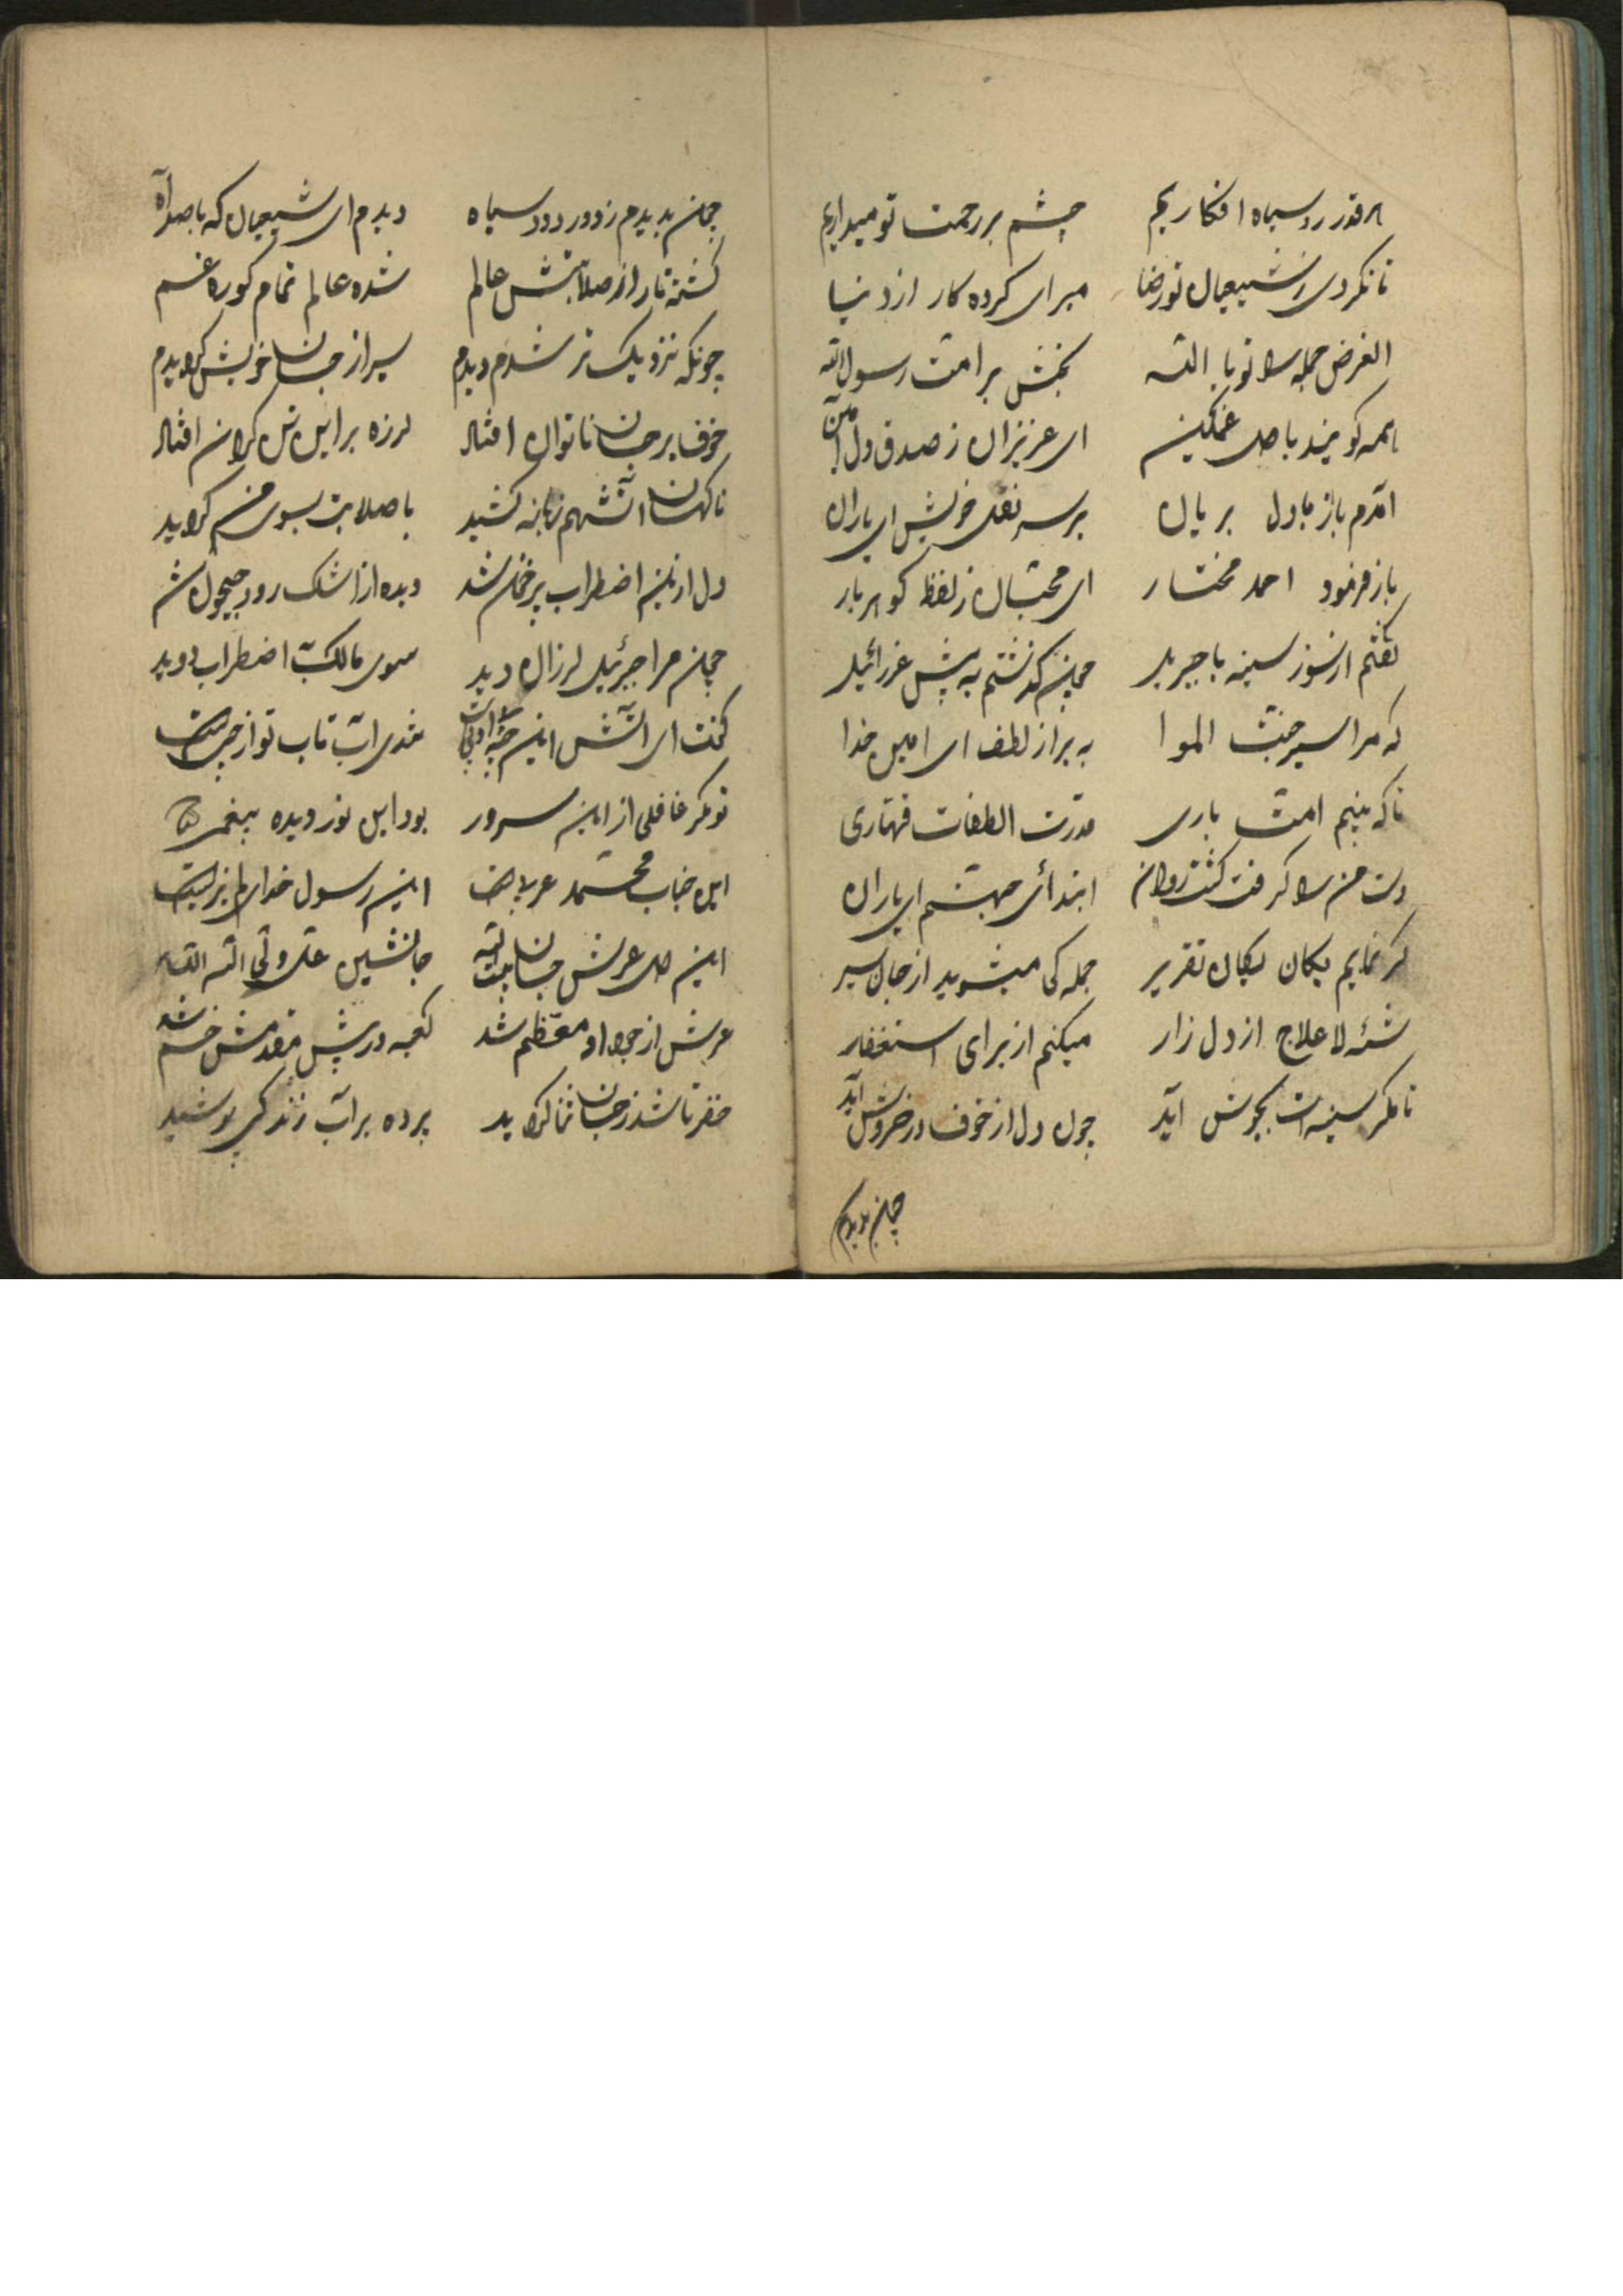 هر قدر رو سیاه افکاریم چشم بر رحمت تو میداریم
تا نکردی ز شیعیان تو رضا مبرای کرده کار از دنیا
الغرض جمله را تو یا الله بخش بر امت رسول الله
همه گویند با دل غمگین ای عزیزان ز صدق دل آمین
آمدم باز با دل بریان بر سر نقل خویش ای یاران
باز فرمود احمد مختار ای محبان ز لفظ گوهربار
گفتم از سوز سینه با جبریل چون گذشتم به پیش عزرائیل
که مرا سیر جنت الموا به بر از لطف ای امین خدا
تا که بینیم امت باری قدرت الطفات قهاری
دست من را گرفت گشت روان ابتدائی جهنم ای یاران
گر نمایم یکان یکان تقریر جمله کی میشوید از جان سیر
شئه لاعلاج از دل زار میکنم از برای استغفار
تا مگر سینه ات بجوش آید چون دل از خوف در خروش آید
چون بدیدم
چون بدیدم ز دور دود سیاه دیدم ای شیعیان که با صد آه
گشته تار از صلابتش عالم شده عالم تمام کوره غم
چونکه نزدیک تر شدم دیدم سیر از جان خویش گردیدم
خوف بر جان ناتوان افتاد لرزه بر این تن گران افتاد
ناگهان آتشهم زبانه کشید با صلابت بسوی من گردید
دل ازین اضطراب پر خون شد دیده از اشک رود جیحون شد
چون مرا جبرئیل لرزان دید سوی مالک با اضطراب دوید
گفت ای آتش این چه ادبیست تندی آب تاب تو از چیست
تو مگر غافلی از این سرور بود این نور دیده پیغمبر
این جناب محمد عربیست این رسول خدای
این دل عرش جانشین علی ولی الله
عرش از جود او معظم شد کعبه در پیش مقدمش خم شد
خضر تا شد ز جان ثنا گردید پرده بر آب زندگی پوشید